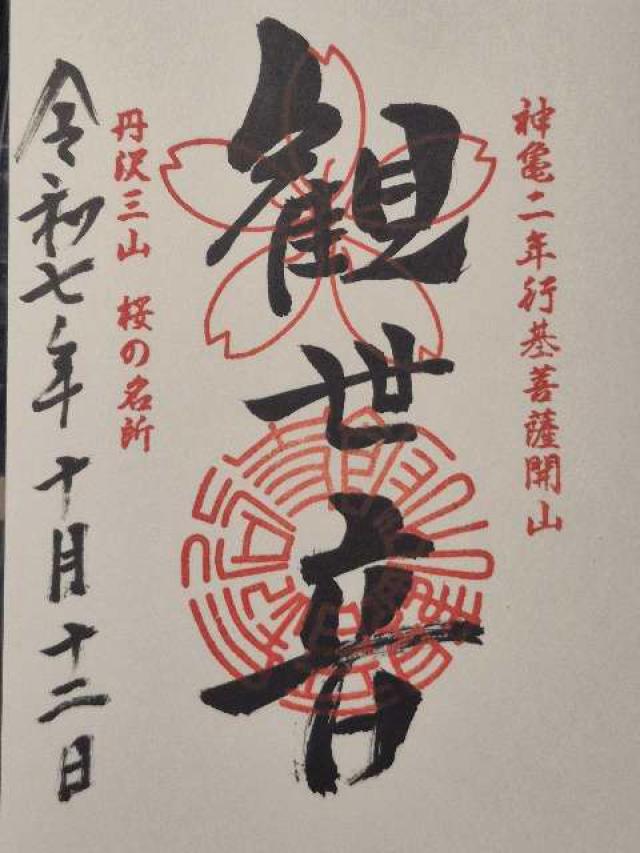 神亀二年行基菩薩開山
観世音
丹沢三山 桜の名所
令和七年十月十二日